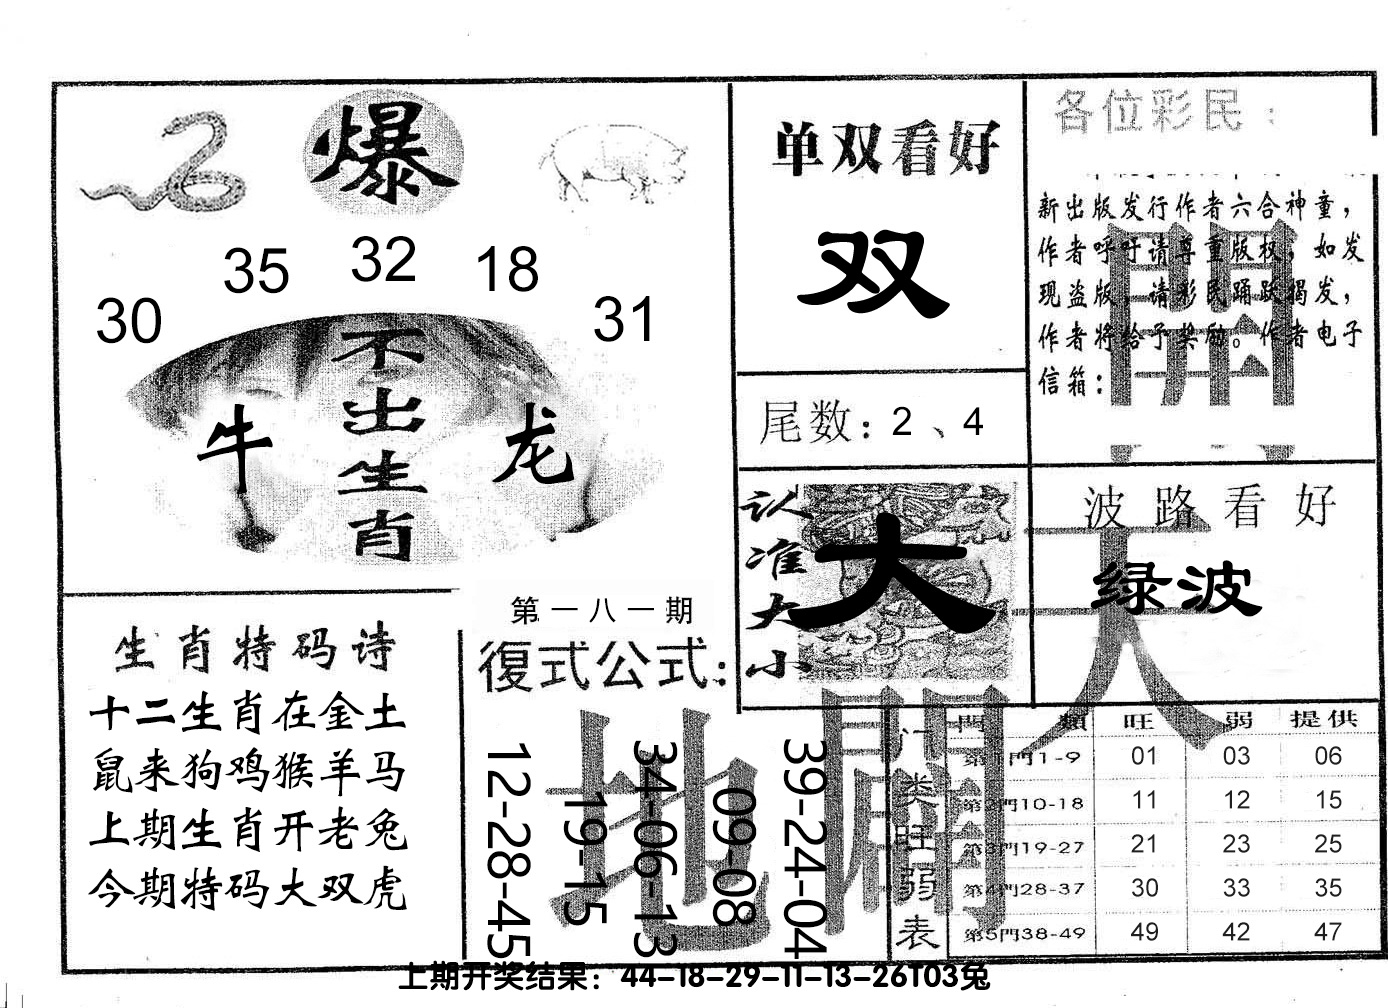 爆
30 35 32 18 31
不出生肖
牛 龙
单双看好
双
尾数：2、4
各位彩民：
新出版发行作者六合神童，
作者呼吁请尊重版权，如发
现盗版，请彩民踊跃揭发，
作者将给予奖励。作者电子
信箱：
開
认准大小
大
波路看好
绿波
天
生肖特码诗
十二生肖在金土
鼠来狗鸡猴羊马
上期生肖开老兔
今期特码大双虎
第一八一期
復式公式：
12-28-45
19-15
34-06-13
09-08
39-24-04
地
门类旺弱表
門類 旺 弱 提供
第1門1-9 01 03 06
第2門10-18 11 12 15
第3門19-27 21 23 25
第4門28-37 30 33 35
第5門38-49 49 42 47
上期开奖结果：44-18-29-11-13-26T03兔